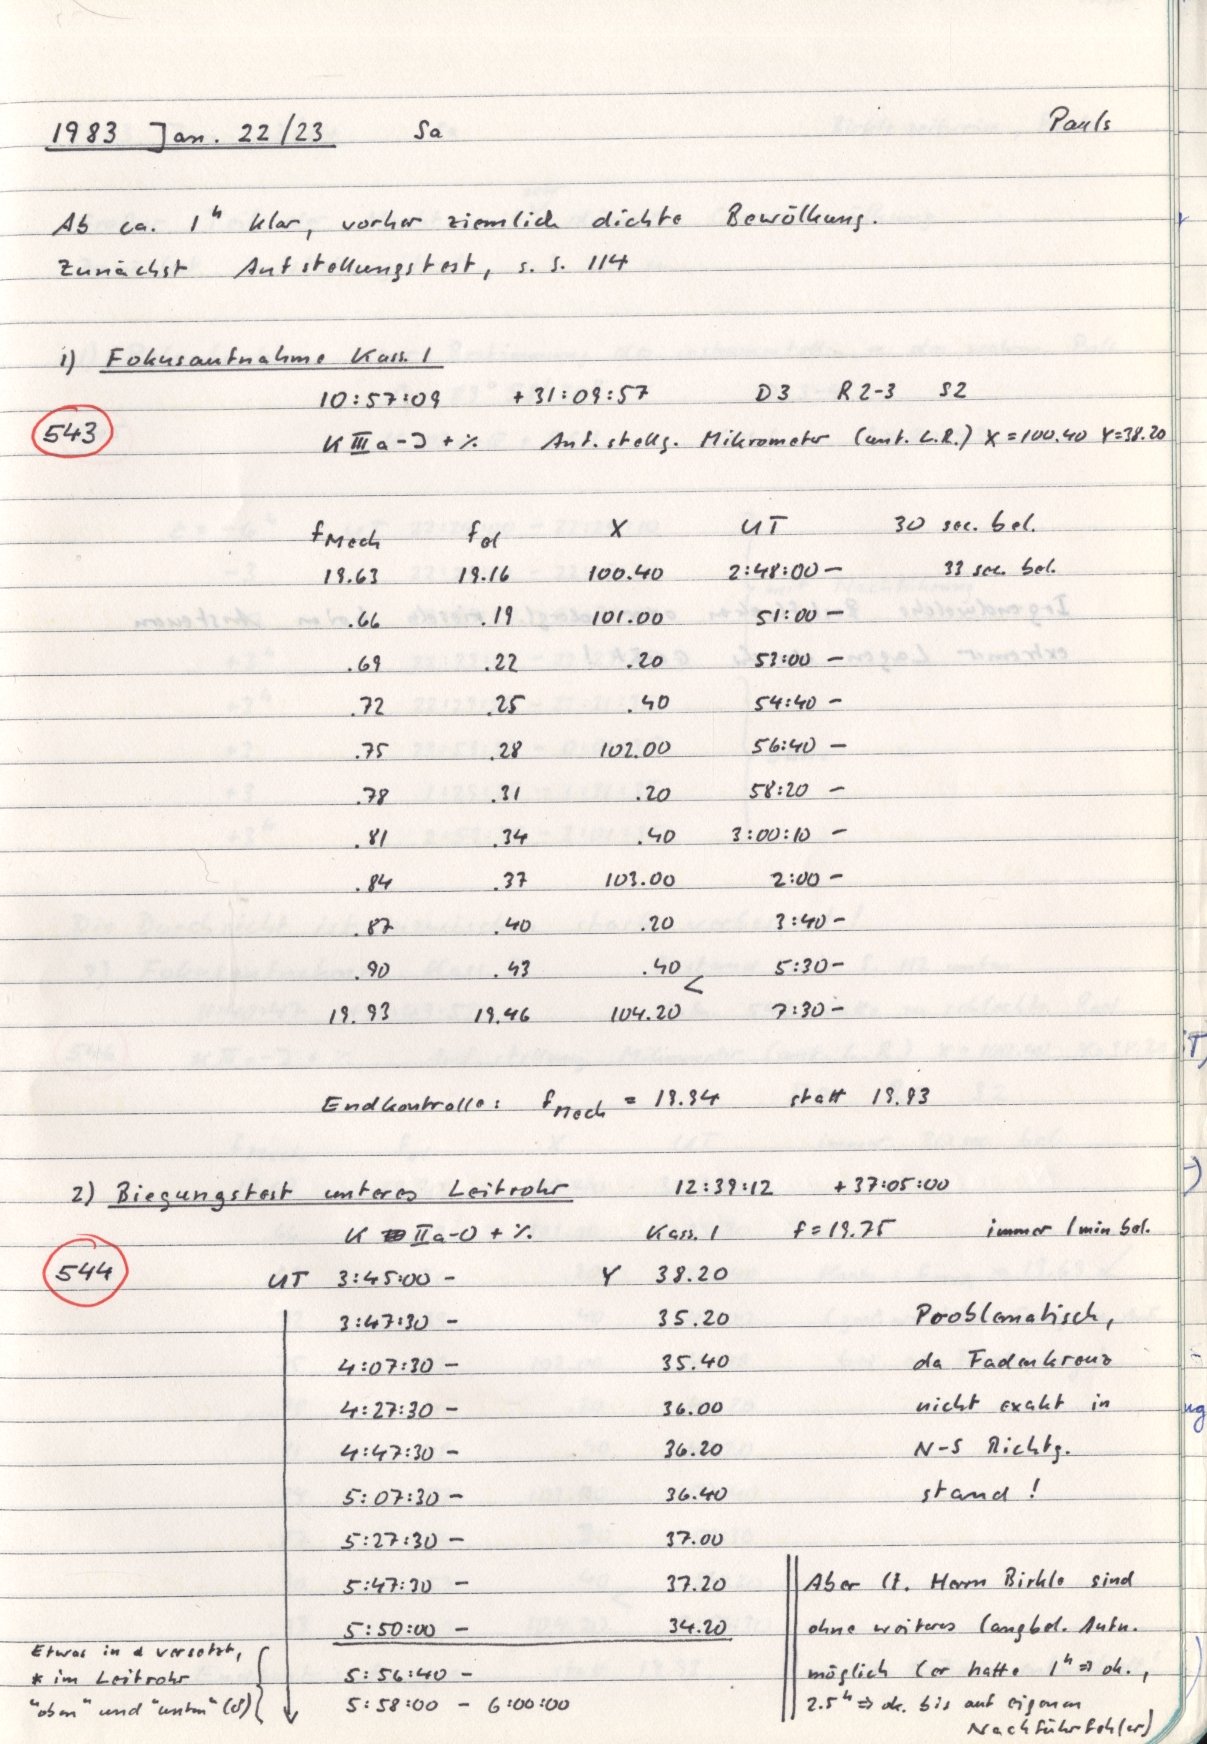 1983 Jan. 22/23 Sa Pauls
Ab ca. 1ʰ klar, vorher ziemlich dichte Bewölkung.
Zunächst Aufstellungstest, s. S. 114
1) Fokusaufnahme Kass. 1
10:57:09 +31:09:57 D3 R2-3 S2
543
K IIIa-J + % Anf.stellg. Mikrometer (unt. L.R.) X=100.40 Y=38.20
fMech fel X UT 30 sec. bel.
19.63 19.16 100.40 2:48:00 – 33 sec. bel.
.66 .19 101.00 51:00 –
.69 .22 .20 53:00 –
.72 .25 .40 54:40 –
.75 .28 102.00 56:40 –
.78 .31 .20 58:20 –
.81 .34 .40 3:00:10 –
.84 .37 103.00 2:00 –
.87 .40 .20 3:40 –
.90 .43 .40 < 5:30 –
19.93 19.46 104.20 7:30 –
Endkontrolle: fMech = 19.94 statt 19.93
2) Biegungstest unteres Leitrohr 12:39:12 +37:05:00
K IIa-O + % Kass. 1 f = 19.75 immer 1 min bel.
544
UT 3:45:00 – Y 38.20
3:47:30 – 35.20 Problematisch,
4:07:30 – 35.40 da Fadenkreuz
4:27:30 – 36.00 nicht exakt in
4:47:30 – 36.20 N-S Richtg.
5:07:30 – 36.40 stand!
5:27:30 – 37.00
5:47:30 – 37.20 Aber lt. Herrn Birkle sind
5:50:00 – 34.20 ohne weiteres langbel. Aufn.
Etwas in α versetzt,
* im Leitrohr 5:56:40 – möglich (er hatte 1ʰ ⇒ ok.,
"oben" und "unten" (δ) 5:58:00 – 6:00:00 2.5ʰ ⇒ ok. bis auf eigenen
Nachführfehler)